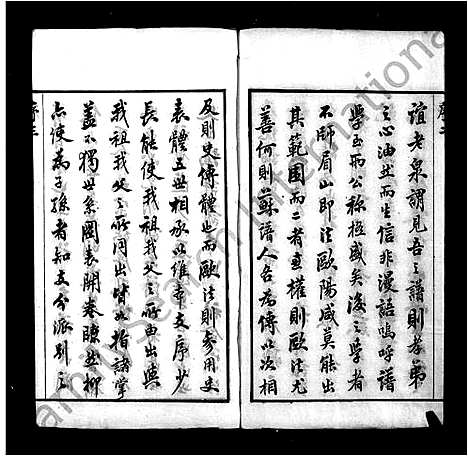 序二
誼老泉謂見吾之譜則孝弟
之心油然而生信非漫語嗚呼譜
學至而公稱極盛矣後之學者
不師眉山即法歐陽咸莫能出
其範圍而二者並權則歐法尤
善何則蘇譜人各為傳以次相
及則史傳體也而歐法則參用史
表體五世相承以維章支序少
長能使我祖我父之所由出與
我祖我父之所同出皆如指諸掌
蓋不獨世系圖表開卷瞭然抑
亦使為子孫者知支分派別之
序三
FamilySearch International